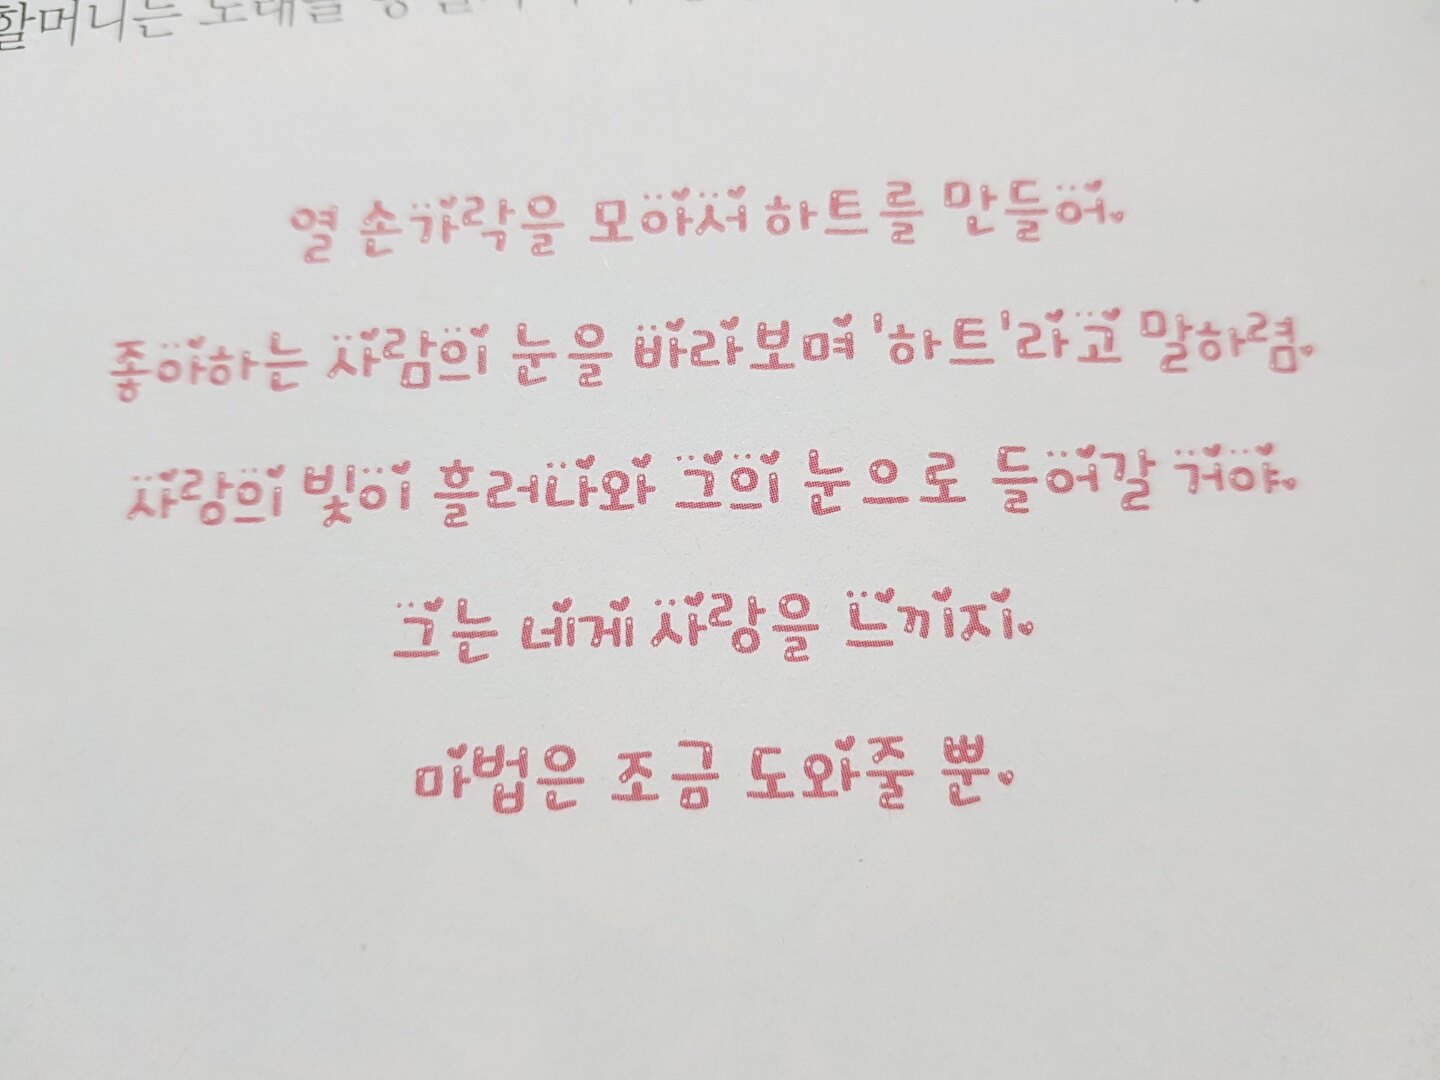 할머니는 노래를
열 손가락을 모아서 하트를 만들어.
좋아하는 사람의 눈을 바라보며 '하트'라고 말하렴.
사랑의 빛이 흘러나와 그의 눈으로 들어갈 거야.
그는 네게 사랑을 느끼지.
마법은 조금 도와줄 뿐.